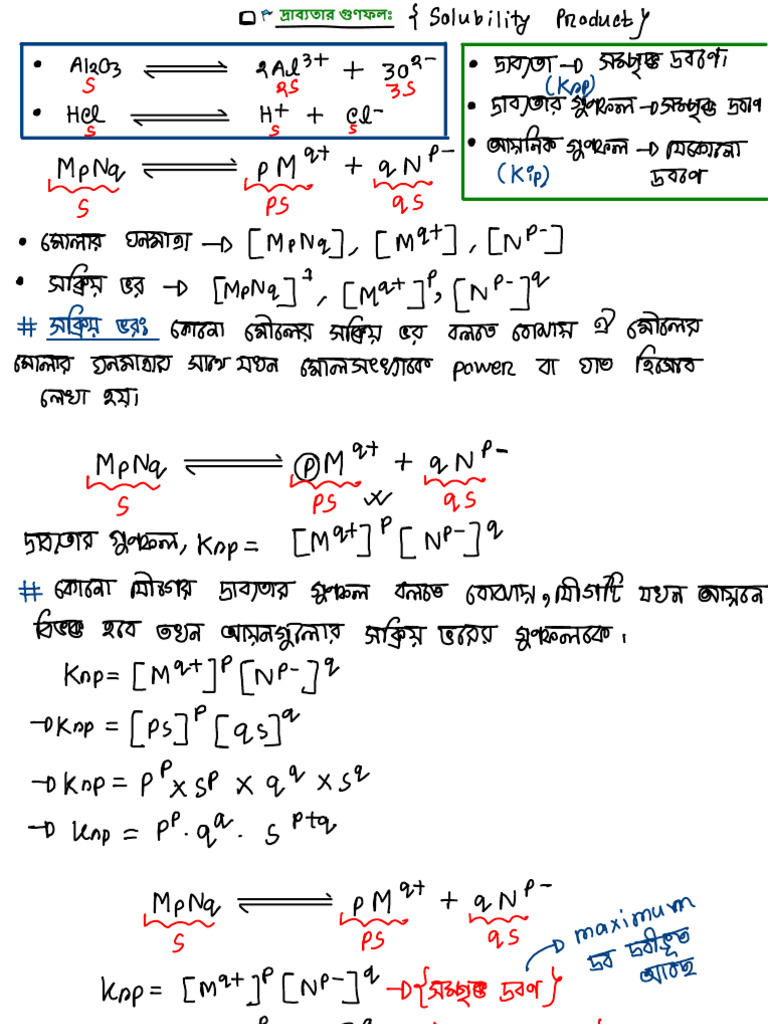 দ্রাব্যতার গুণফলঃ { Solubility Product }
• Al2O3 ⇌ 2Al³⁺ + 3O²⁻
S 2S 3S
• HCl ⇌ H⁺ + Cl⁻
S S S
• দ্রাব্যতা → সম্পৃক্ত দ্রবণে।
(Ksp)
• দ্রাব্যতার গুণফল → সম্পৃক্ত দ্রবণ
• আয়নিক গুণফল → যেকোনো
(Kip) দ্রবণে
MpNq ⇌ pM^q+ + qN^p-
S PS qS
• মোলার ঘনমাত্রা → [MpNq], [M^q+], [N^p-]
• সক্রিয় ভর → [MpNq]^1, [M^q+]^p, [N^p-]^q
# সক্রিয় ভরঃ কোনো মৌলের সক্রিয় ভর বলতে বোঝায় ঐ মৌলের
মোলার ঘনমাত্রার সাথে যখন মোলসংখ্যাকে power বা ঘাত হিসেবে
লেখা হয়।
MpNq ⇌ pM^q+ + qN^p-
S PS qS
দ্রাব্যতার গুণফল, Ksp = [M^q+]^p [N^p-]^q
# কোনো যৌগের দ্রাব্যতার গুণফল বলতে বোঝায়, যৌগটি যখন আয়নে
বিভক্ত হবে তখন আয়নগুলোর সক্রিয় ভরের গুণফলকে।
Ksp = [M^q+]^p [N^p-]^q
→ Ksp = [PS]^p [qS]^q
→ Ksp = P^p × S^p × q^q × S^q
→ Ksp = P^p · q^q · S^p+q
MpNq ⇌ pM^q+ + qN^p-
S PS qS
→ maximum
দ্রব দ্রবীভূত
আছে
Ksp = [M^q+]^p [N^p-]^q → {সম্পৃক্ত দ্রবণ}